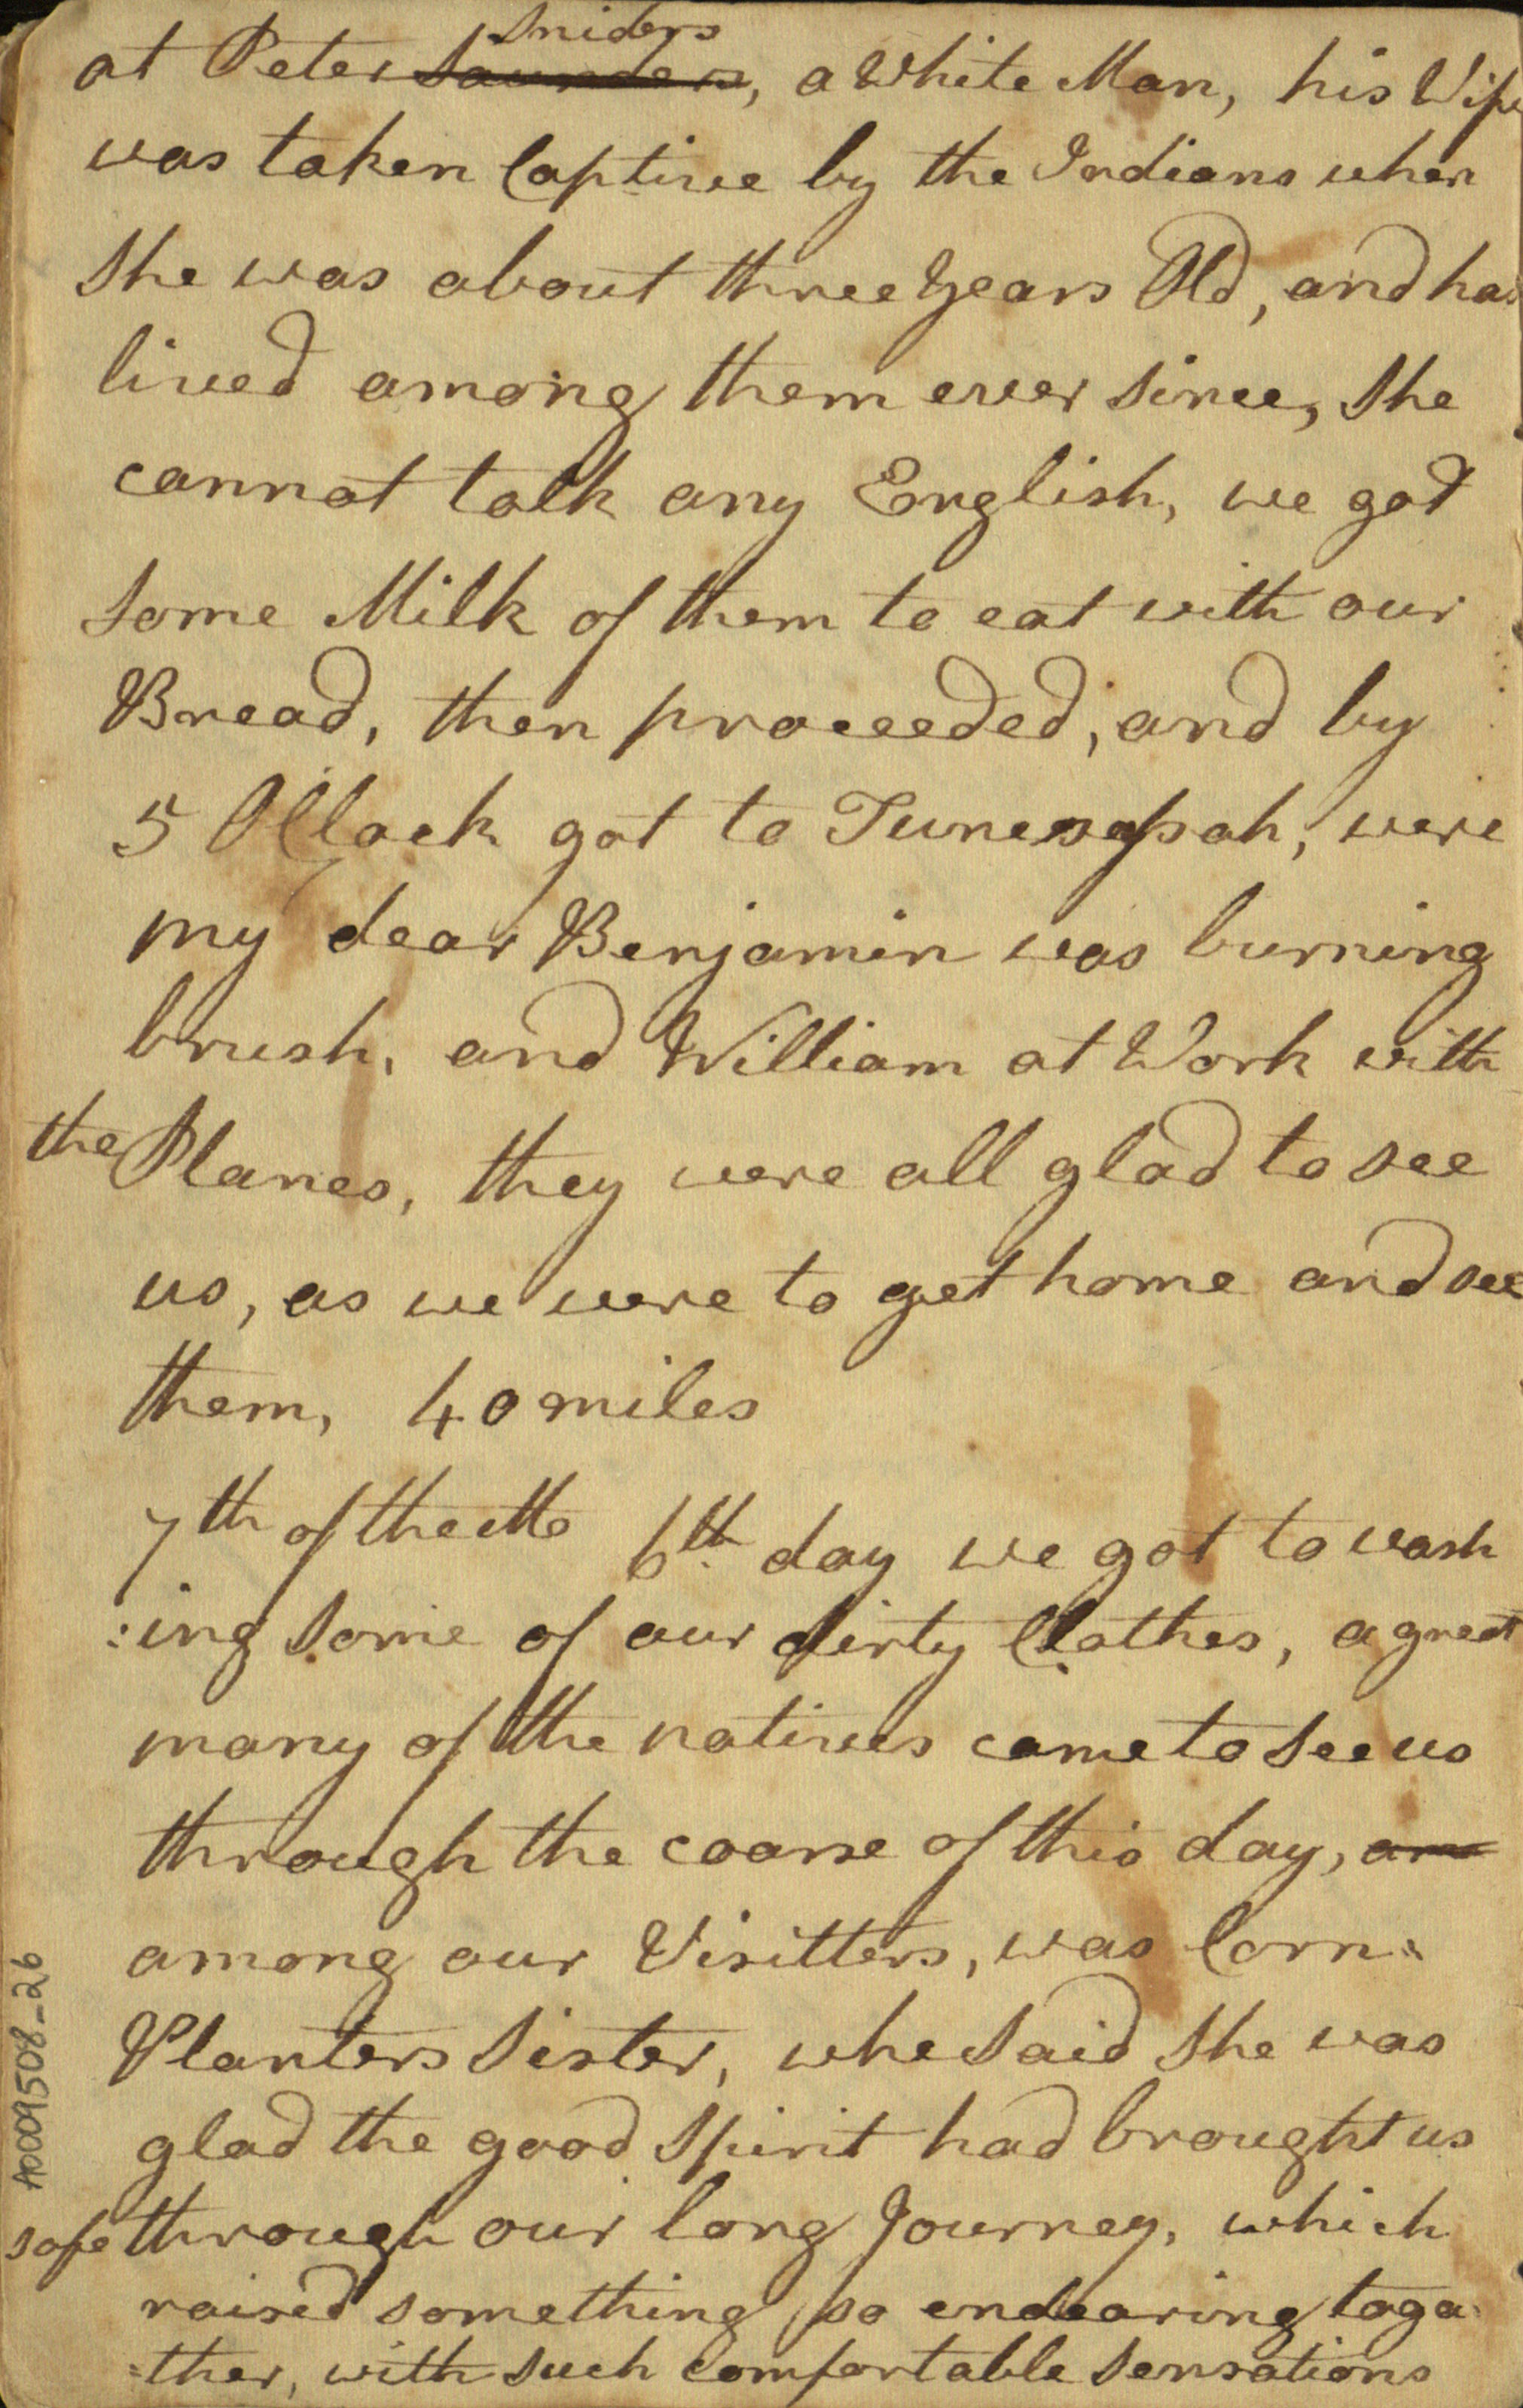 Sniders
at Peter Saunders, a White Man, his Wife
was taken Captive by the Indians when
She was about three Years Old, and has
lived among them ever since, She
cannot talk any English, we got
some Milk of them to eat with our
Bread, then proceeded, and by
5 OClock got to Tunesasah, were
my dear Benjamin was burning
brush, and William at Work with
the Planes, they were all glad to see
us, as we were to get home and see
them, 40 miles
7th of the Mo 6th day we got to wash
:ing some of our dirty Clothes, a great
many of the natives came to see us
through the coarse of this day, an
among our Visitters, was Corn:
Planters Sister, who Said She was
glad the good Spirit had brought us
safe through our long Journey, which
raised something so endearing toga:
:ther, with such comfortable Sensations
A0009508_26